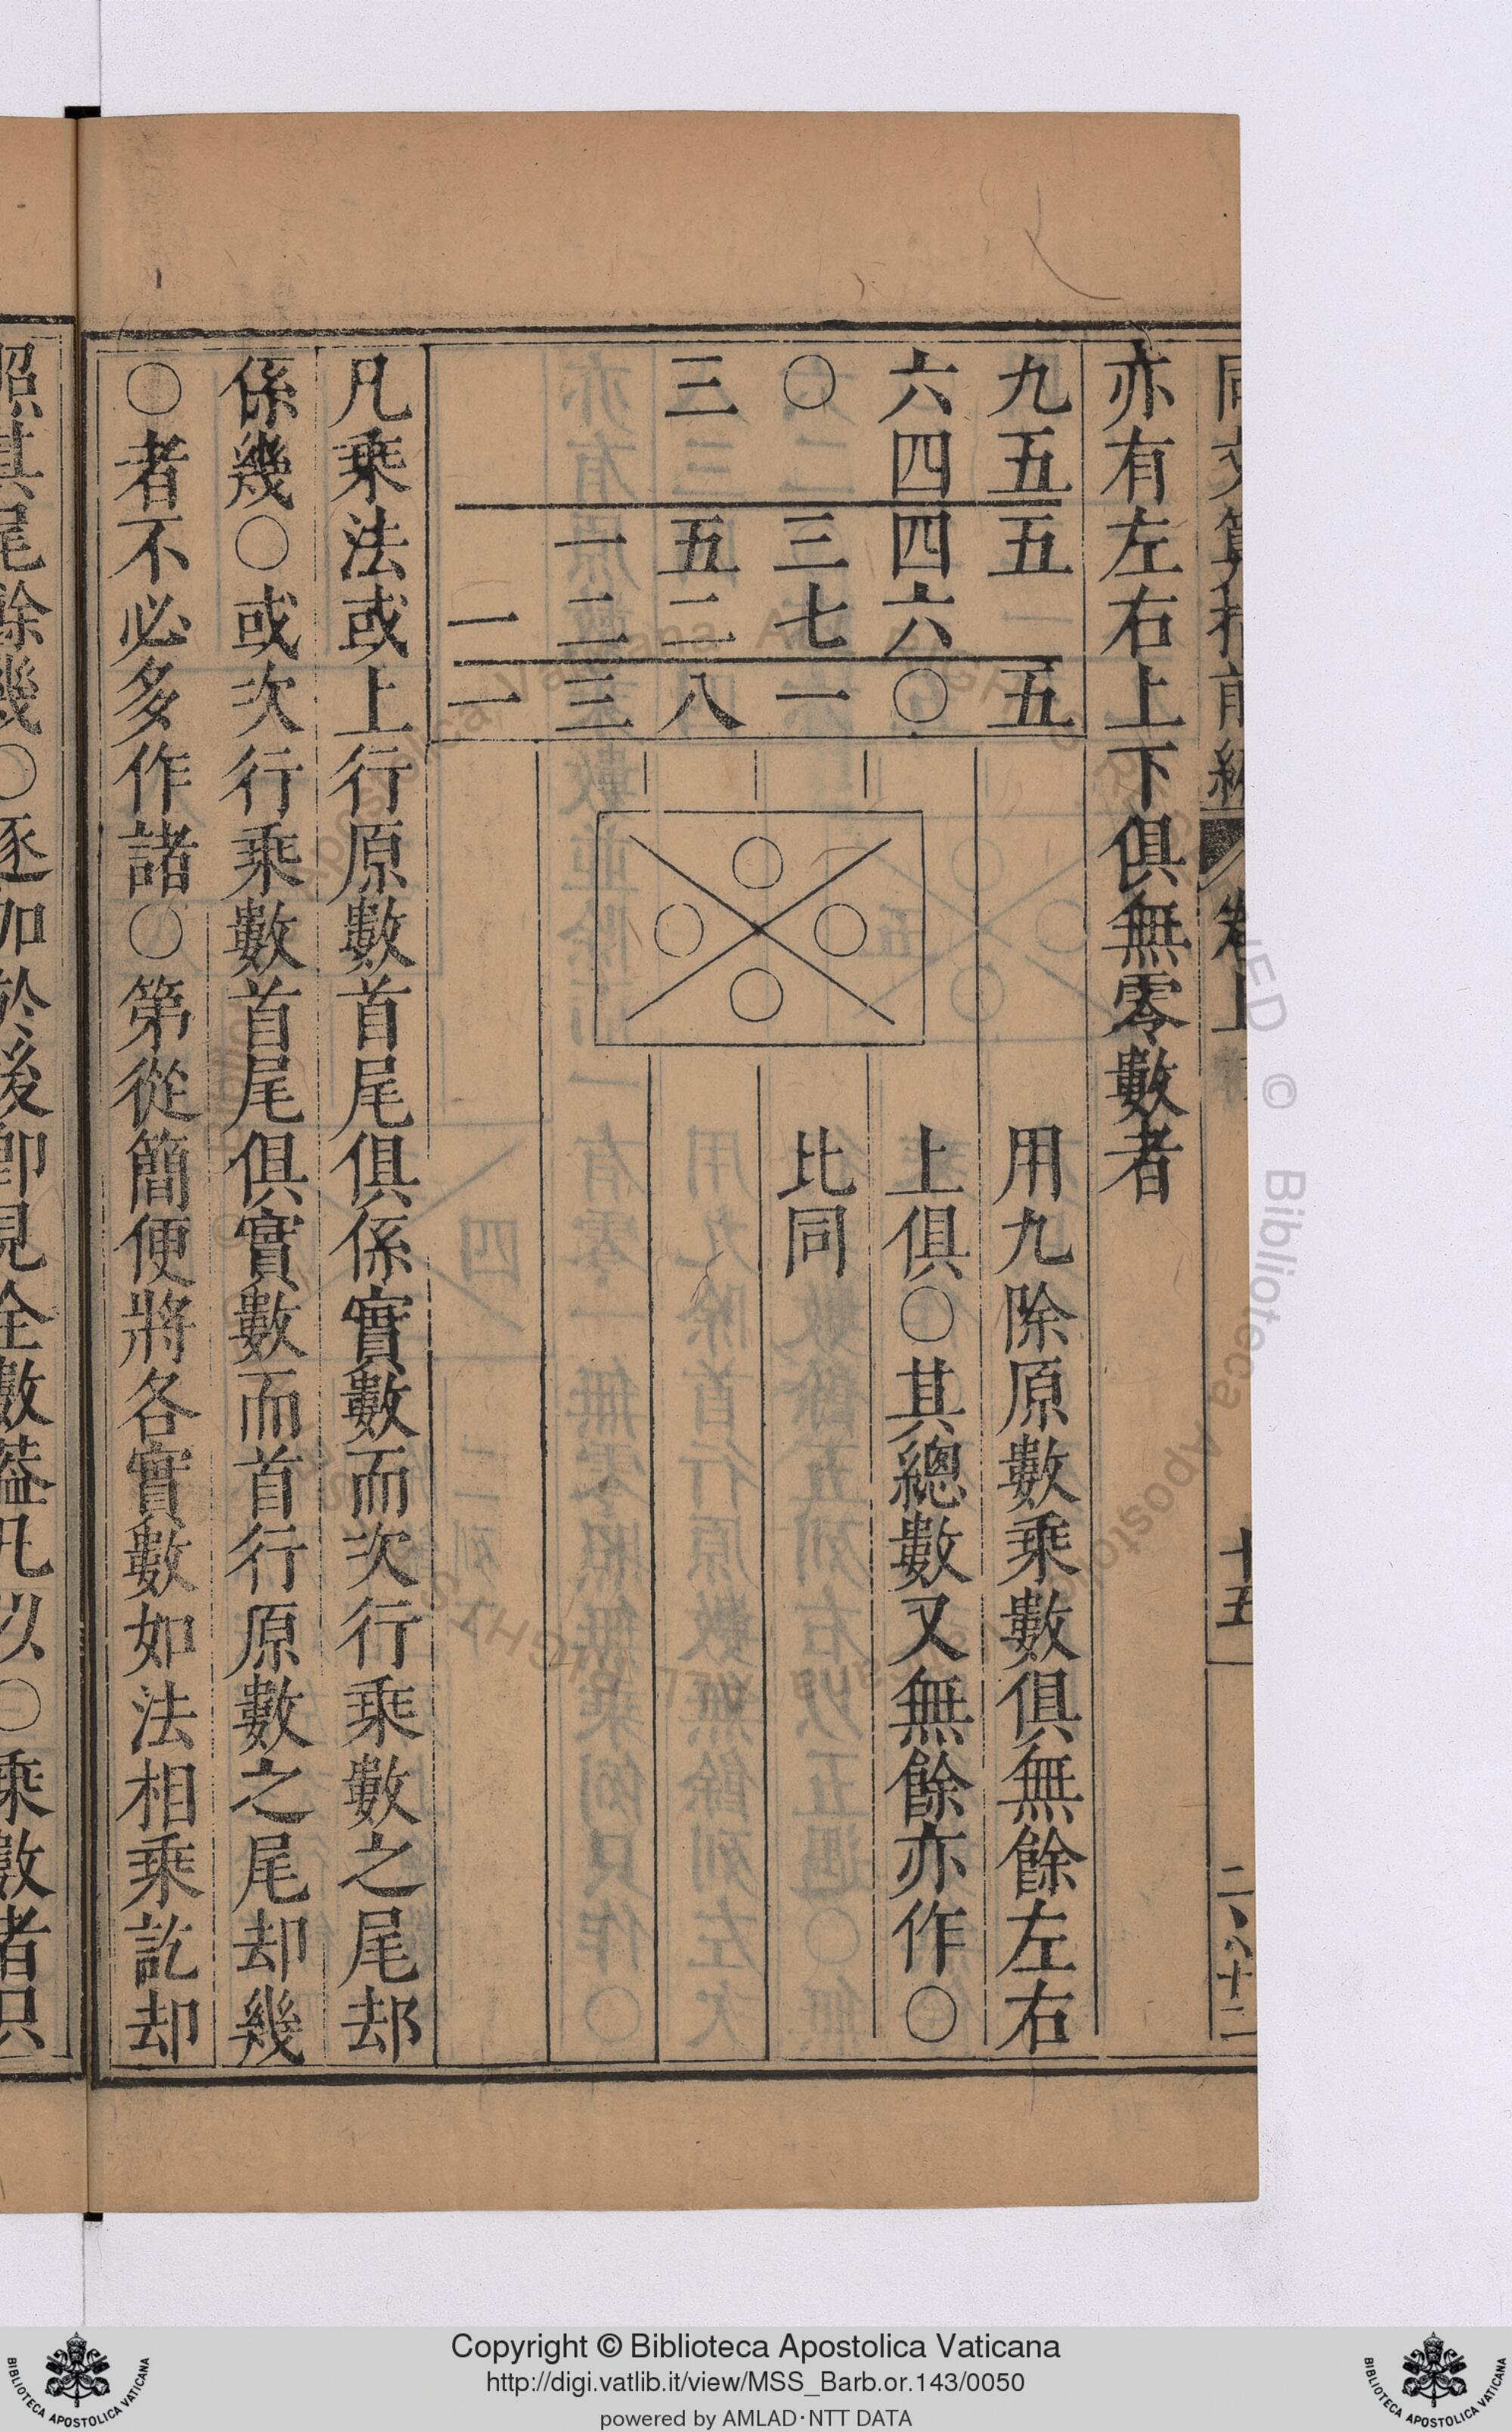 同文算指前編 卷上 十五
亦有左右上下俱無零數者
九五五五
六四四六〇
〇三七一
三五二八
一二三
一一
〇
〇〇
〇
用九除原數乘數俱無餘左右
上俱〇其總數又無餘亦作〇
比同
凡乘法或上行原數首尾俱係實數而次行乘數之尾却
係幾〇或次行乘數首尾俱實數而首行原數之尾却幾
〇者不必多作諸〇第從簡便將各實數如法相乘訖却
照其尾餘幾〇逐加於後即見全數蓋凡以〇乘數者只
Copyright © Biblioteca Apostolica Vaticana
http://digi.vatlib.it/view/MSS_Barb.or.143/0050
powered by AMLAD·NTT DATA
BIBLIOTECA APOSTOLICA VATICANA
BIBLIOTECA APOSTOLICA VATICANA